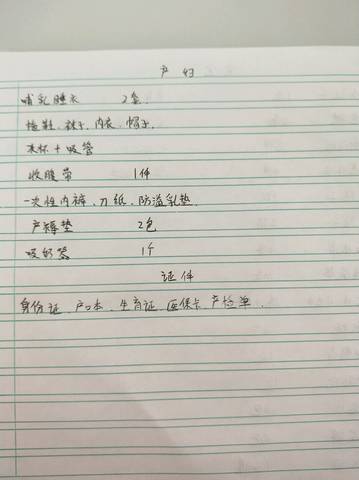 产妇
哺乳睡衣 2套
拖鞋、袜子、内衣、帽子、
水杯+吸管
收腹带 1件
一次性内裤、刀纸、防溢乳垫
产褥垫 2包
吸奶器 1个
证件
身份证、户口本、生育证、医保卡、产检单、